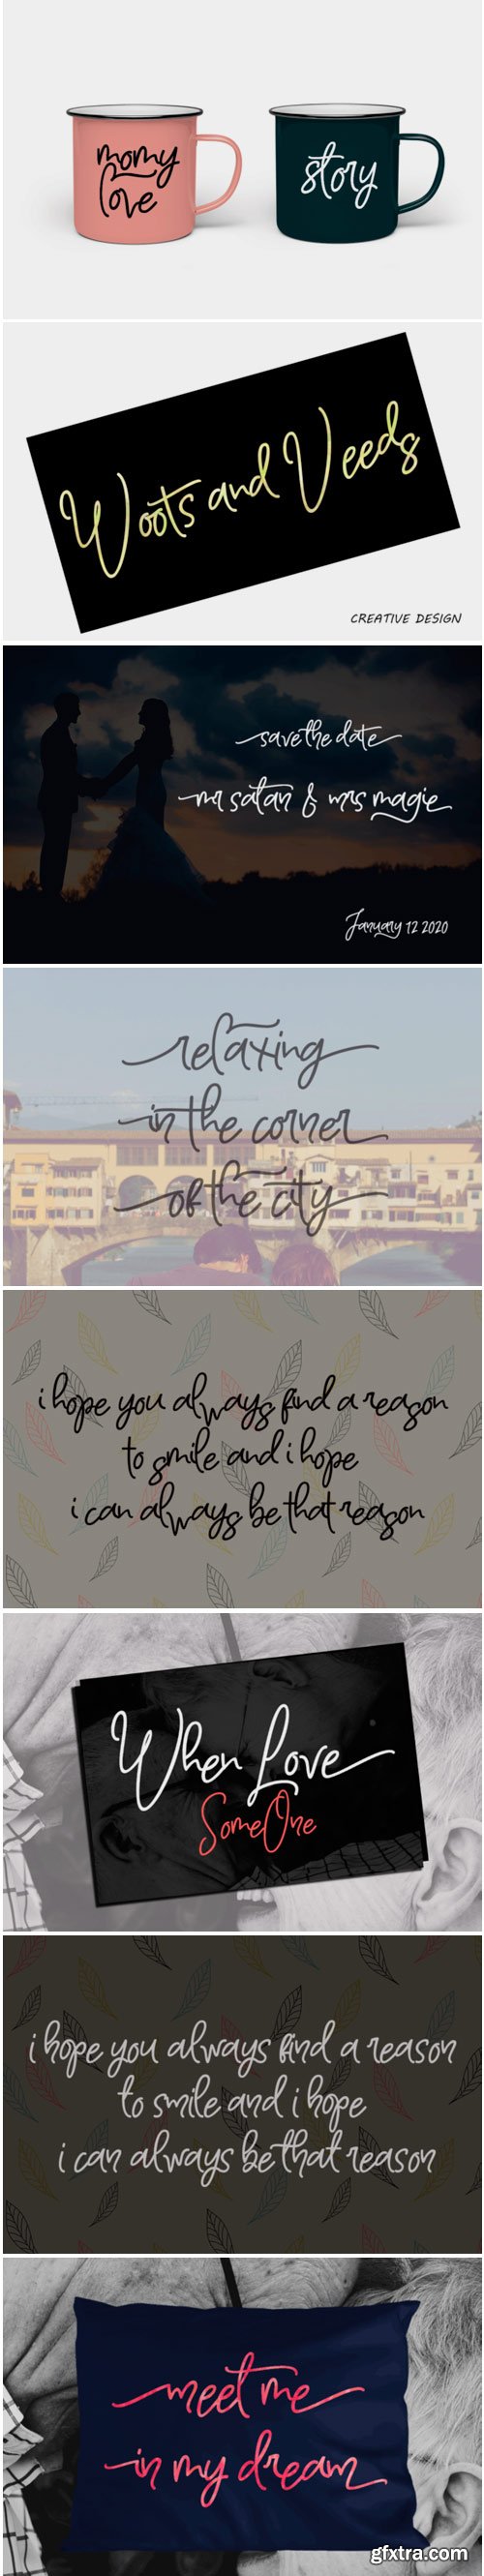 momy
love
story
Woots and Veeds
CREATIVE DESIGN
save the date
mr satan & mrs magie
January 12 2020
relaxing
in the corner
of the city
i hope you always find a reason
to smile and i hope
i can always be that reason
When Love
SomeOne
i hope you always find a reason
to smile and i hope
i can always be that reason
meet me
in my dream
gfxtra.com